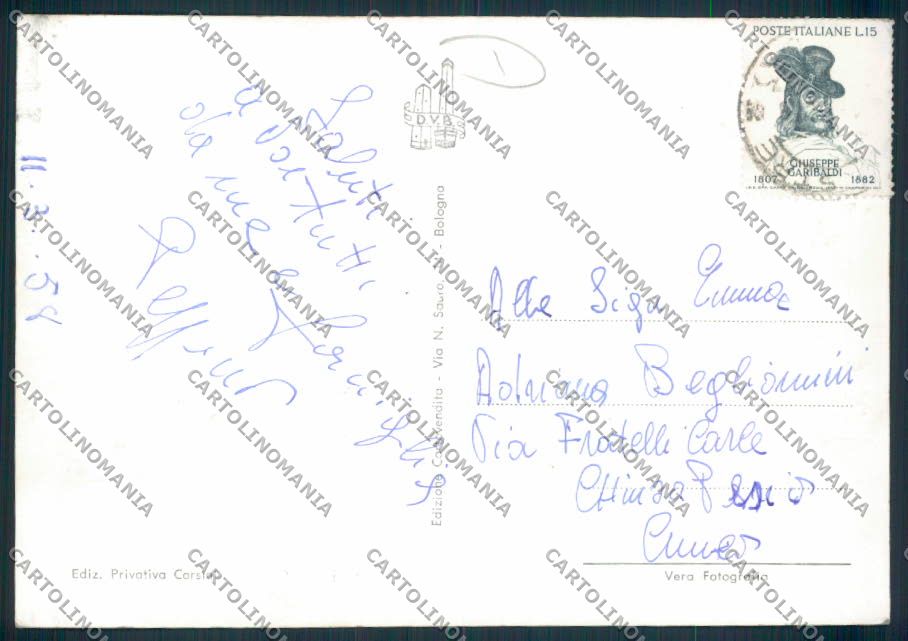 POSTE ITALIANE L.15
GIUSEPPE
GARIBALDI
1807 1882
D.V.B.
Saluti
a tutti
da me e famiglia
11.3.58
Edizione Casa vendita - Via N. Sauro, - Bologna
Alla Sig.a Emma
Adriana Beghiomini
Via Fratelli Carle
Chiusa Pesio
Cuneo
Ediz. Privativa Corsi
Vera Fotografia
CARTOLINOMANIA